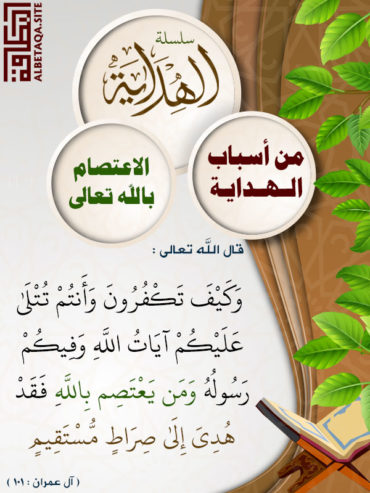 البطاقة
ALBETAQA.SITE
سلسلة
الهُدَايَة
من أسباب
الـهـدايـة
الاعتصام
بالله تعالى
قال اللَّه تعالى :
وَكَيْفَ تَكْفُرُونَ وَأَنتُمْ تُتْلَىٰ
عَلَيْكُمْ آيَاتُ اللَّهِ وَفِيكُمْ
رَسُولُهُ وَمَن يَعْتَصِم بِاللَّهِ فَقَدْ
هُدِيَ إِلَىٰ صِرَاطٍ مُّسْتَقِيمٍ
( آل عمران : ١٠١ )